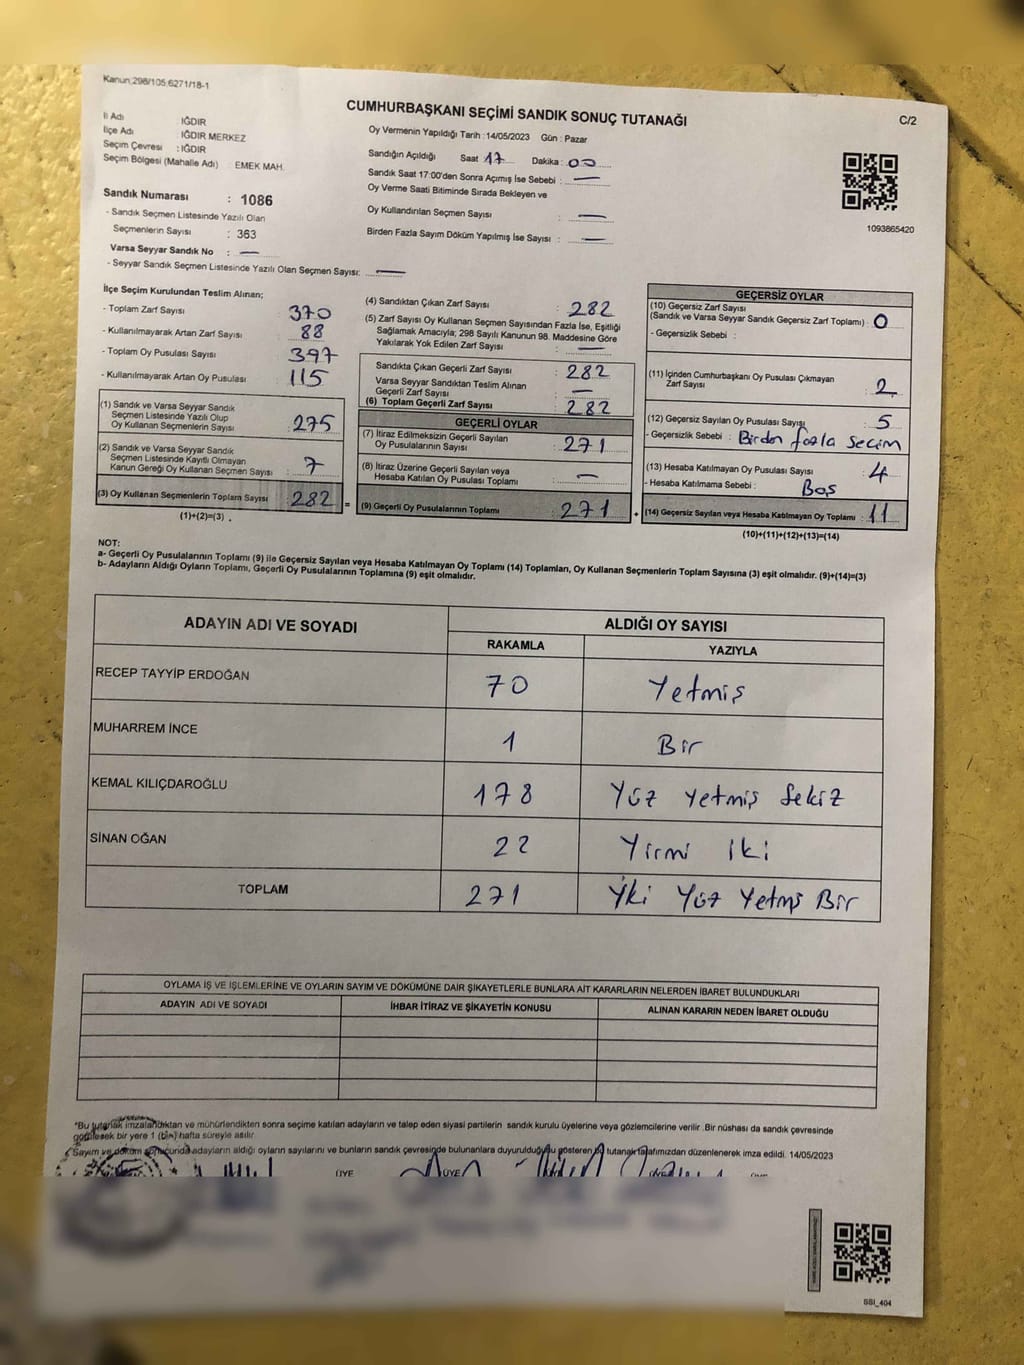 Kanun:298/105;6271/18-1
CUMHURBAŞKANI SEÇİMİ SANDIK SONUÇ TUTANAĞI
C/2
İl Adı : IĞDIR
İlçe Adı : IĞDIR MERKEZ
Seçim Çevresi : IĞDIR
Seçim Bölgesi (Mahalle Adı) : EMEK MAH.
Sandık Numarası : 1086
- Sandık Seçmen Listesinde Yazılı Olan
Seçmenlerin Sayısı : 363
Varsa Seyyar Sandık No : —
- Seyyar Sandık Seçmen Listesinde Yazılı Olan Seçmen Sayısı: —
Oy Vermenin Yapıldığı Tarih : 14/05/2023 Gün : Pazar
Sandığın Açıldığı Saat 17 Dakika : 00
Sandık Saat 17:00'den Sonra Açımış İse Sebebi : —
Oy Verme Saati Bitiminde Sırada Bekleyen ve
Oy Kullandırılan Seçmen Sayısı : —
Birden Fazla Sayım Döküm Yapılmış İse Sayısı : —
1093865420
İlçe Seçim Kurulundan Teslim Alınan;
- Toplam Zarf Sayısı : 370
- Kullanılmayarak Artan Zarf Sayısı : 88
- Toplam Oy Pusulası Sayısı : 397
- Kullanılmayarak Artan Oy Pusulası : 115
(1) Sandık ve Varsa Seyyar Sandık
Seçmen Listesinde Yazılı Olup
Oy Kullanan Seçmenlerin Sayısı : 275
(2) Sandık ve Varsa Seyyar Sandık
Seçmen Listesinde Kayıtlı Olmayan
Kanun Gereği Oy Kullanan Seçmen Sayısı : 7
(3) Oy Kullanan Seçmenlerin Toplam Sayısı : 282 =
(1)+(2)=(3) .
(4) Sandıktan Çıkan Zarf Sayısı : 282
(5) Zarf Sayısı Oy Kullanan Seçmen Sayısından Fazla İse, Eşitliği
Sağlamak Amacıyla; 298 Sayılı Kanunun 98. Maddesine Göre
Yakılarak Yok Edilen Zarf Sayısı : —
Sandıkta Çıkan Geçerli Zarf Sayısı : 282
Varsa Seyyar Sandıktan Teslim Alınan
Geçerli Zarf Sayısı : —
(6) Toplam Geçerli Zarf Sayısı : 282
GEÇERLİ OYLAR
(7) İtiraz Edilmeksizin Geçerli Sayılan
Oy Pusulalarının Sayısı : 271
(8) İtiraz Üzerine Geçerli Sayılan veya
Hesaba Katılan Oy Pusulası Toplamı : —
(9) Geçerli Oy Pusulalarının Toplamı : 271 +
GEÇERSİZ OYLAR
(10) Geçersiz Zarf Sayısı
(Sandık ve Varsa Seyyar Sandık Geçersiz Zarf Toplamı) : 0
- Geçersizlik Sebebi :
(11) İçinden Cumhurbaşkanı Oy Pusulası Çıkmayan
Zarf Sayısı : 2
(12) Geçersiz Sayılan Oy Pusulası Sayısı : 5
- Geçersizlik Sebebi : Birden fazla Secim
(13) Hesaba Katılmayan Oy Pusulası Sayısı : 4
- Hesaba Katılmama Sebebi : Boş
(14) Geçersiz Sayılan veya Hesaba Katılmayan Oy Toplamı : 11
(10)+(11)+(12)+(13)=(14)
NOT:
a- Geçerli Oy Pusulalarının Toplamı (9) ile Geçersiz Sayılan veya Hesaba Katılmayan Oy Toplamı (14) Toplamları, Oy Kullanan Seçmenlerin Toplam Sayısına (3) eşit olmalıdır. (9)+(14)=(3)
b- Adayların Aldığı Oyların Toplamı, Geçerli Oy Pusulalarının Toplamına (9) eşit olmalıdır.
ADAYIN ADI VE SOYADI
ALDIĞI OY SAYISI
RAKAMLA YAZIYLA
RECEP TAYYİP ERDOĞAN 70 Yetmiş
MUHARREM İNCE 1 Bir
KEMAL KILIÇDAROĞLU 178 Yüz Yetmiş Sekiz
SİNAN OĞAN 22 Yirmi iki
TOPLAM 271 İki Yüz Yetmiş Bir
OYLAMA İŞ VE İŞLEMLERİNE VE OYLARIN SAYIM VE DÖKÜMÜNE DAİR ŞİKAYETLERLE BUNLARA AİT KARARLARIN NELERDEN İBARET BULUNDUKLARI
ADAYIN ADI VE SOYADI İHBAR İTİRAZ VE ŞİKAYETİN KONUSU ALINAN KARARIN NEDEN İBARET OLDUĞU
*Bu tutanak imzalandıktan ve mühürlendikten sonra seçime katılan adayların ve talep eden siyasi partilerin sandık kurulu üyelerine veya gözlemcilerine verilir .Bir nüshası da sandık çevresinde
görülecek bir yere 1 (bin) hafta süreyle asılır.
Sayım ve döküm sonucunda adayların aldığı oyların sayılarını ve bunların sandık çevresinde bulunanlara duyurulduğunu gösteren bu tutanak tarafımızdan düzenlenerek imza edildi. 14/05/2023
ÜYE ÜYE
SSI_404